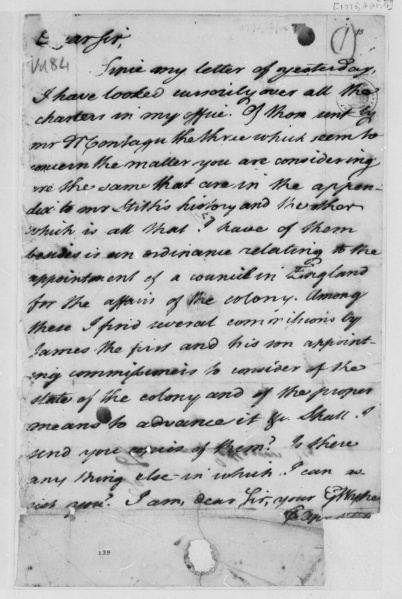 Dear Sir,
Since my letter of yesterday,
I have looked cursorily over all the
charters in my office. Of those sent by
mr Montagu the three which seem to
concern the matter you are considering
are the same that are in the appen-
dix to mr Stith's history and the other
which is all that I have of them
besides is an ordinance relating to the
appointment of a council in England
for the affairs of the colony. Among
these I find several commissions by
James the first and his son appoint-
ing commissioners to consider of the
state of the colony and of the proper
means to advance it &c. Shall I
send you copies of them? Is there
any thing else in which I can as
sist you? I am, dear Sir, your G Wythe
139